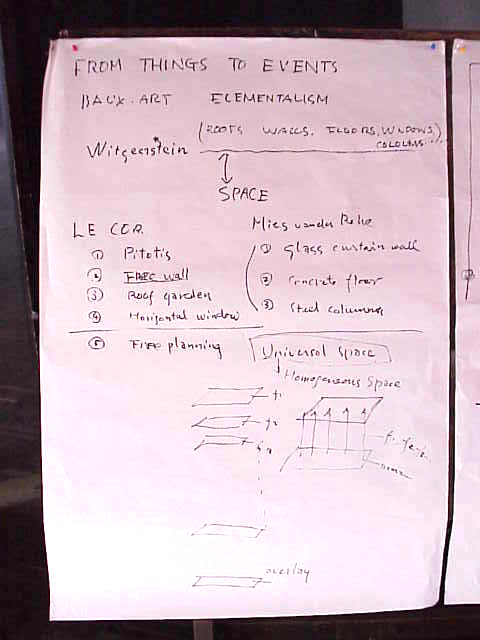 FROM THINGS TO EVENTS
BAUX. ART ELEMENTALISM
(ROOTS WALLS. FLOORS, WINDOWS,
COLOUMS...)
Witgenstein
SPACE
LE COR.
① Pitotis
② FREE wall
③ Roof garden
④ Horizontal window
⑤ Free planning
Mies vander Rohe
① Glass curtain wall
② Concrete floor
③ Steel columns
Universal space
Homogeneous Space
f1
f2
overlay